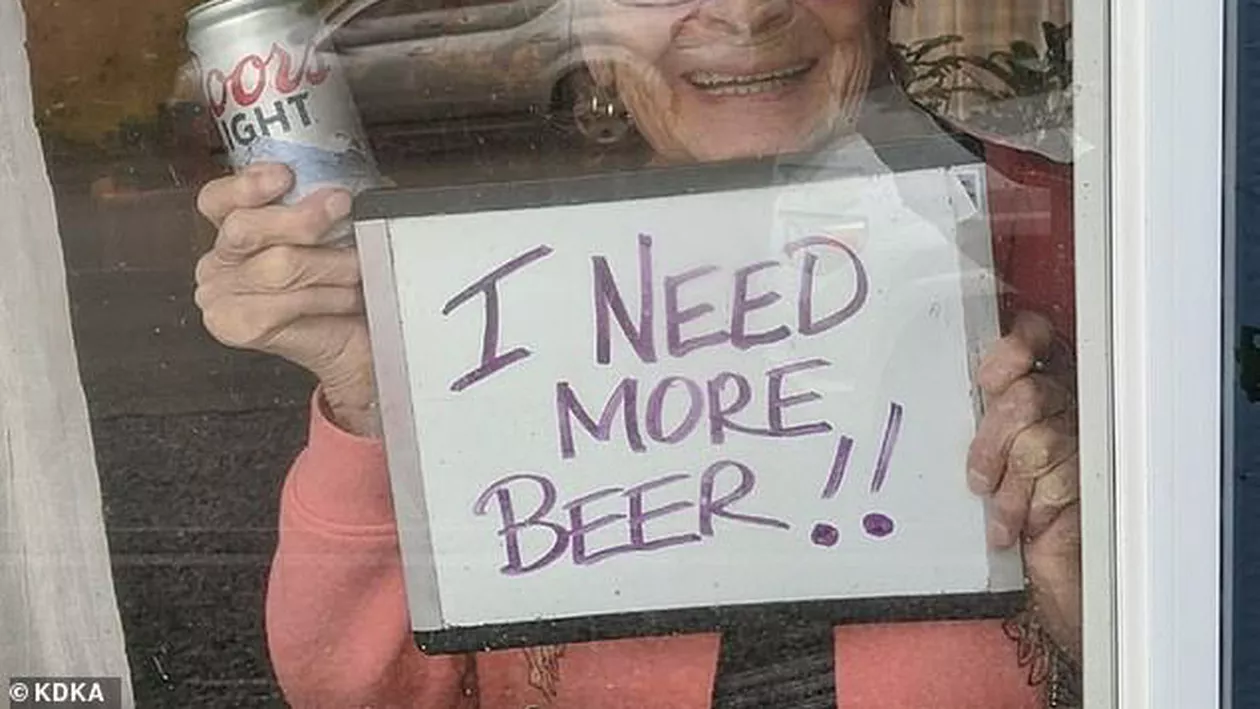 COORS
LIGHT
I NEED
MORE
BEER!!
© KDKA